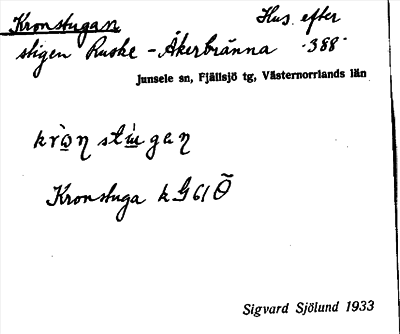 Kronstugan Hus efter
stigen Ruske - Åkerbränna -388-
Junsele sn, Fjällsjö tg, Västernorrlands län
Kronstuga k G 61 Ö
Sigvard Sjölund 1933